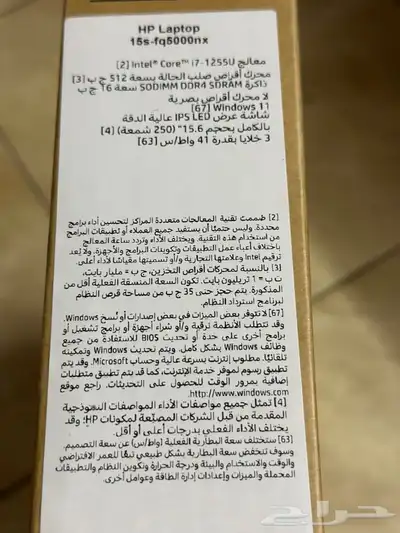 HP Laptop
15s-fq5000nx
معالج Intel® Core™ i7-1255U [2]
محرك أقراص صلب الحالة بسعة 512 ج ب [3]
ذاكرة SODIMM DDR4 SDRAM سعة 16 ج ب
لا محرك أقراص بصرية
Windows 11 [67]
شاشة عرض IPS LED عالية الدقة
بالكامل بحجم 15.6" (250 شمعة) [4]
3 خلايا بقدرة 41 واط/س [63]
[2] صُممت تقنية المعالجات متعددة المراكز لتحسين أداء برامج
محددة. وليس حتمًا أن يستفيد جميع العملاء أو تطبيقات البرامج
من استخدام هذه التقنية. ويختلف الأداء وتردد ساعة المعالج
باختلاف أعباء عمل التطبيقات وتكوينات البرامج والأجهزة. ولا يُعد
ترقيم Intel وعلامتها التجارية و/أو تسميتها مقياسًا لأداء أعلى.
[3] بالنسبة لمحركات أقراص التخزين، ج ب = مليار بايت.
ت ب = 1 تريليون بايت. تكون السعة المنسقة الفعلية أقل من
المذكورة. يتم حجز حتى 35 ج ب من مساحة قرص النظام
لبرنامج استرداد النظام.
[67] لا تتوفر بعض الميزات في بعض إصدارات أو نُسخ Windows.
وقد تتطلب الأنظمة ترقية و/أو شراء أجهزة أو برامج تشغيل أو
برامج أخرى على حدة أو تحديث BIOS للاستفادة من جميع
وظائف Windows بشكل كامل. ويتم تحديث Windows وتمكينه
تلقائيًا. مطلوب إنترنت بسرعة عالية وحساب Microsoft. وقد يتم
تطبيق رسوم لموفر خدمة الإنترنت، كما قد يتم تطبيق متطلبات
إضافية بمرور الوقت للحصول على التحديثات. راجع موقع
http://www.windows.com.
[4] تمثل جميع مواصفات الأداء المواصفات النموذجية
المقدمة من قبل الشركات المصنّعة لمكونات HP؛ وقد
يختلف الأداء الفعلي بدرجات أعلى أو أقل.
[63] ستختلف سعة البطارية الفعلية (واط/س) عن سعة التصميم.
وسوف تنخفض سعة البطارية بشكل طبيعي تبعًا للعمر الافتراضي
والوقت والاستخدام والبيئة ودرجة الحرارة وتكوين النظام والتطبيقات
المحملة والميزات وإعدادات إدارة الطاقة وعوامل أخرى.
حراج